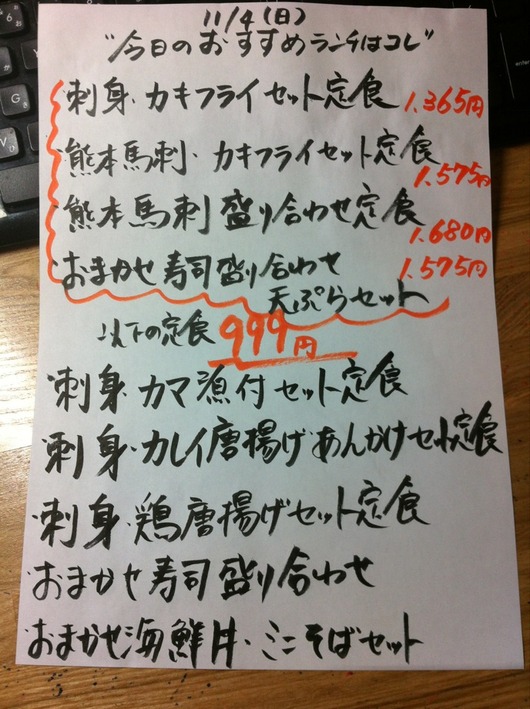 11/4(日)
"今日のおすすめランチはコレ"
刺身・カキフライセット定食
1.365円
熊本馬刺・カキフライセット定食
1.575円
熊本馬刺盛り合わせ定食
1.680円
おまかせ寿司盛り合わせ
天ぷらセット
1.575円
以下の定食 999円
刺身・カマ漁付セット定食
刺身・カレイ唐揚げあんかけセット定食
刺身・鶏唐揚げセット定食
おまかせ寿司盛り合わせ
おまかせ海鮮丼・ミニそばセット